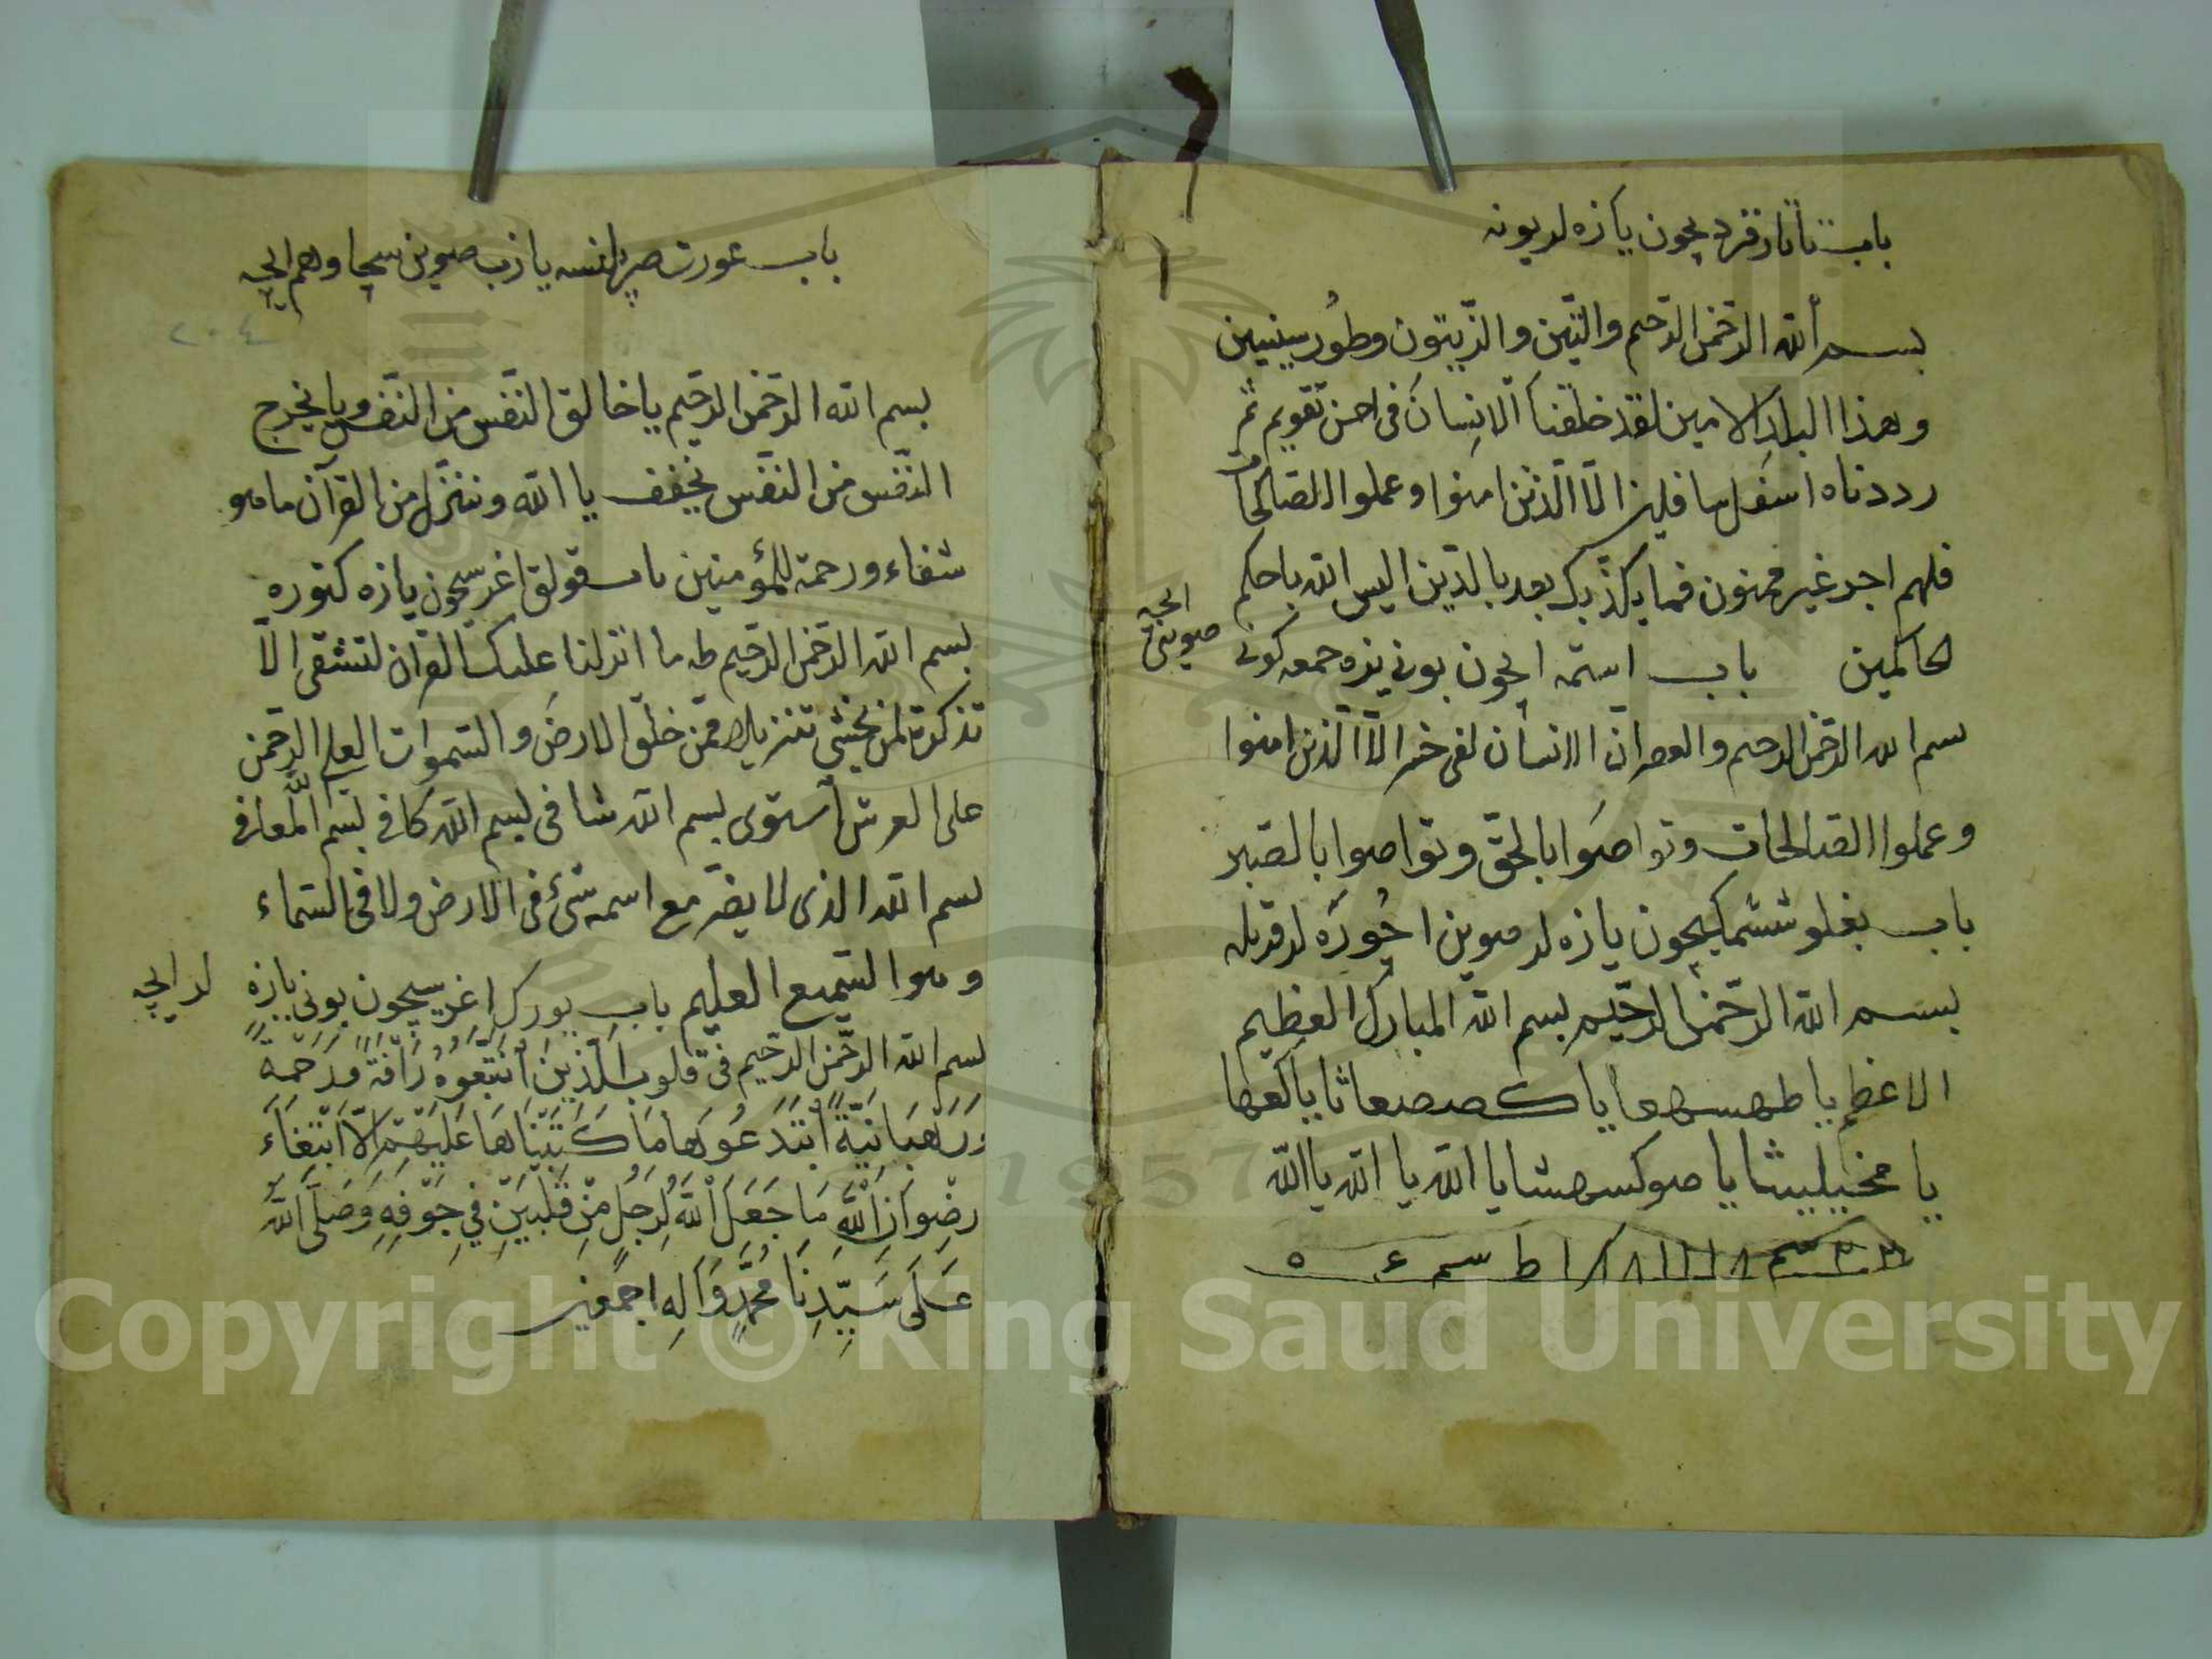 باب تاتار قردیچون یازه لر بوینه
بسم الله الرحمن الرحیم والتین والزیتون وطور سینین
وهذا البلد الامین لقد خلقنا الانسان فی احسن تقویم ثم
رددناه اسفل سافلین الا الذین امنوا وعملوا الصالحات
فلهم اجر غیر ممنون فما یکذبک بعد بالدین الیس الله باحکم
الحاکمین باب استمه ایچون بونی یزه جمعه کونی
صوینی ایچه
بسم الله الرحمن الرحیم والعصر ان الانسان لفی خسر الا الذین امنوا
وعملوا الصالحات وتواصوا بالحق وتواصوا بالصبر
باب بغلو ششمکیچون یازه لر صوین اچوره لر
بسم الله الرحمن الرحیم بسم الله المبارک العظیم
الاعظم یا
یا الله یا الله یا الله
باب عورت یازب صوین سچا وهم ایچه
٢٠٤
بسم الله الرحمن الرحیم یا خالق النفس من النفس ویا یخرج
النفس من النفس یخفف یا الله وننزل من القرآن ما هو
شفاء ورحمة للمؤمنین باب قولق اغریسیچون یازه کتوره
بسم الله الرحمن الرحیم طه ما انزلنا علیک القران لتشقی الا
تذکرة لمن یخشی تنزیلا ممن خلق الارض والسموات العلی الرحمن
علی العرش استوی بسم الله شافی بسم الله کافی بسم الله المعافی
بسم الله الذی لا یضر مع اسمه شیء فی الارض ولا فی السماء
وهو السمیع العلیم باب یورک اغریسیچون بونی یازه لر ایچه
بسم الله الرحمن الرحیم فی قلوب الذین اتبعوه رَأفَةً وَرَحْمَةً
وَرَهْبَانِیَّةً ابْتَدَعُوهَا مَا کَتَبْنَاهَا عَلَیْهِمْ اِلَّا ابْتِغَاءَ
رِضْوَانِ اللهِ مَا جَعَلَ اللهُ لِرَجُلٍ مِنْ قَلْبَیْنِ فِی جَوْفِهِ وَصَلَّی اللهُ
عَلَی سَیِّدِنَا مُحَمَّدٍ وَآلِهِ اجمعین
1957
Copyright © King Saud University